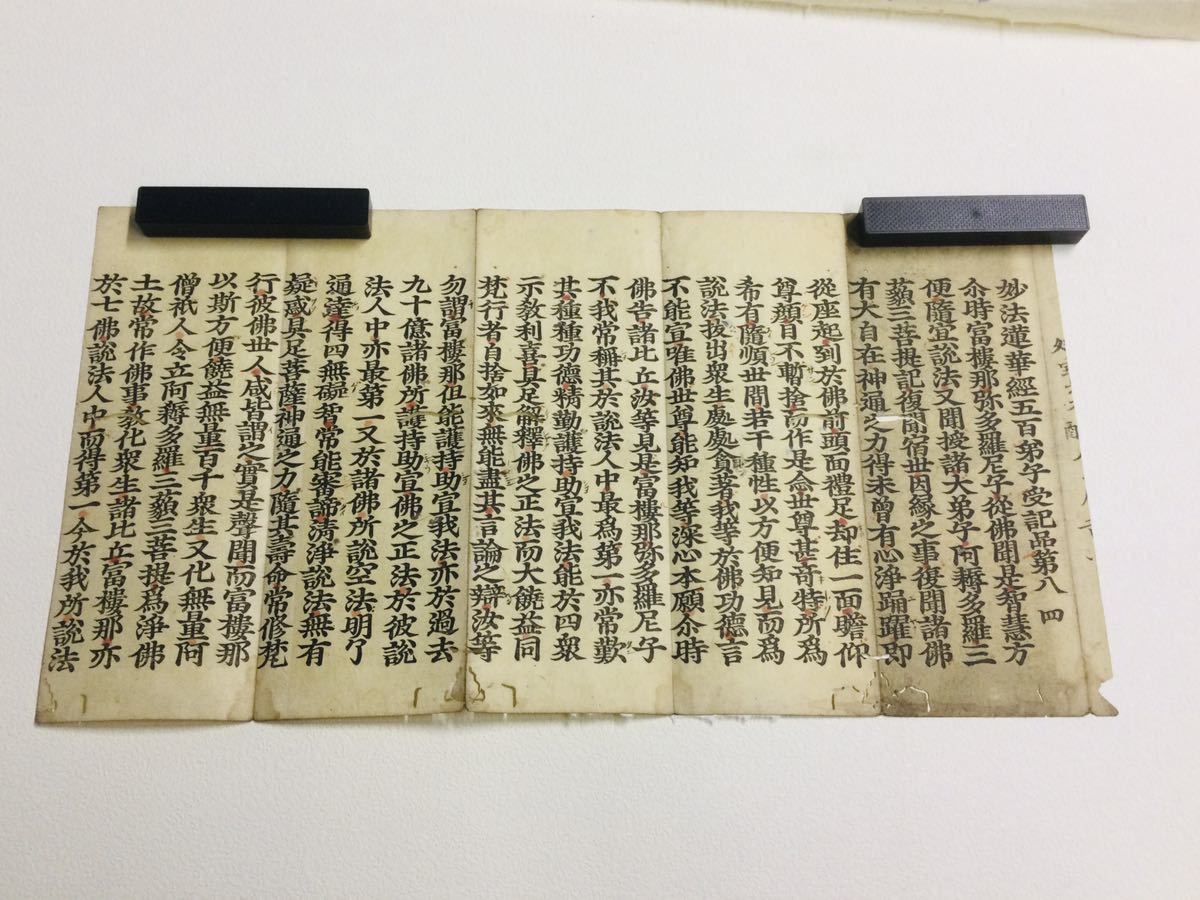 妙法蓮華經五百弟子受記品第八 四
尒時富樓那弥多羅尼子從佛聞是智慧方
便隨宜說法又聞授諸大弟子阿耨多羅三
藐三菩提記復聞宿世因緣之事復聞諸佛
有大自在神通之力得未曾有心淨踊躍即
從座起到於佛前頭面禮足却住一面瞻仰
尊顏目不暫捨而作是念世尊甚奇特所為
希有隨順世間若干種性以方便知見而為
說法拔出衆生處處貪著我等於佛功德言
不能宣唯佛世尊能知我等深心本願尒時
佛告諸比丘汝等見是富樓那弥多羅尼子
不我常稱其於說法人中最為第一亦常歎
其種種功德精勤護持助宣我法能於四衆
示教利喜具足解釋佛之正法而大饒益同
梵行者自捨如來無能盡其言論之辯汝等
勿謂富樓那但能護持助宣我法亦於過去
九十億諸佛所護持助宣佛之正法於彼說
法人中亦最第一又於諸佛所說空法明了
通達得四無礙智常能審諦清淨說法無有
疑惑具足菩薩神通之力隨其壽命常修梵
行彼佛世人咸皆謂之實是聲聞而富樓那
以斯方便饒益無量百千衆生又化無量阿
僧祇人令立阿耨多羅三藐三菩提為淨佛
土故常作佛事教化衆生諸比丘富樓那亦
於七佛說法人中而得第一今於我所說法